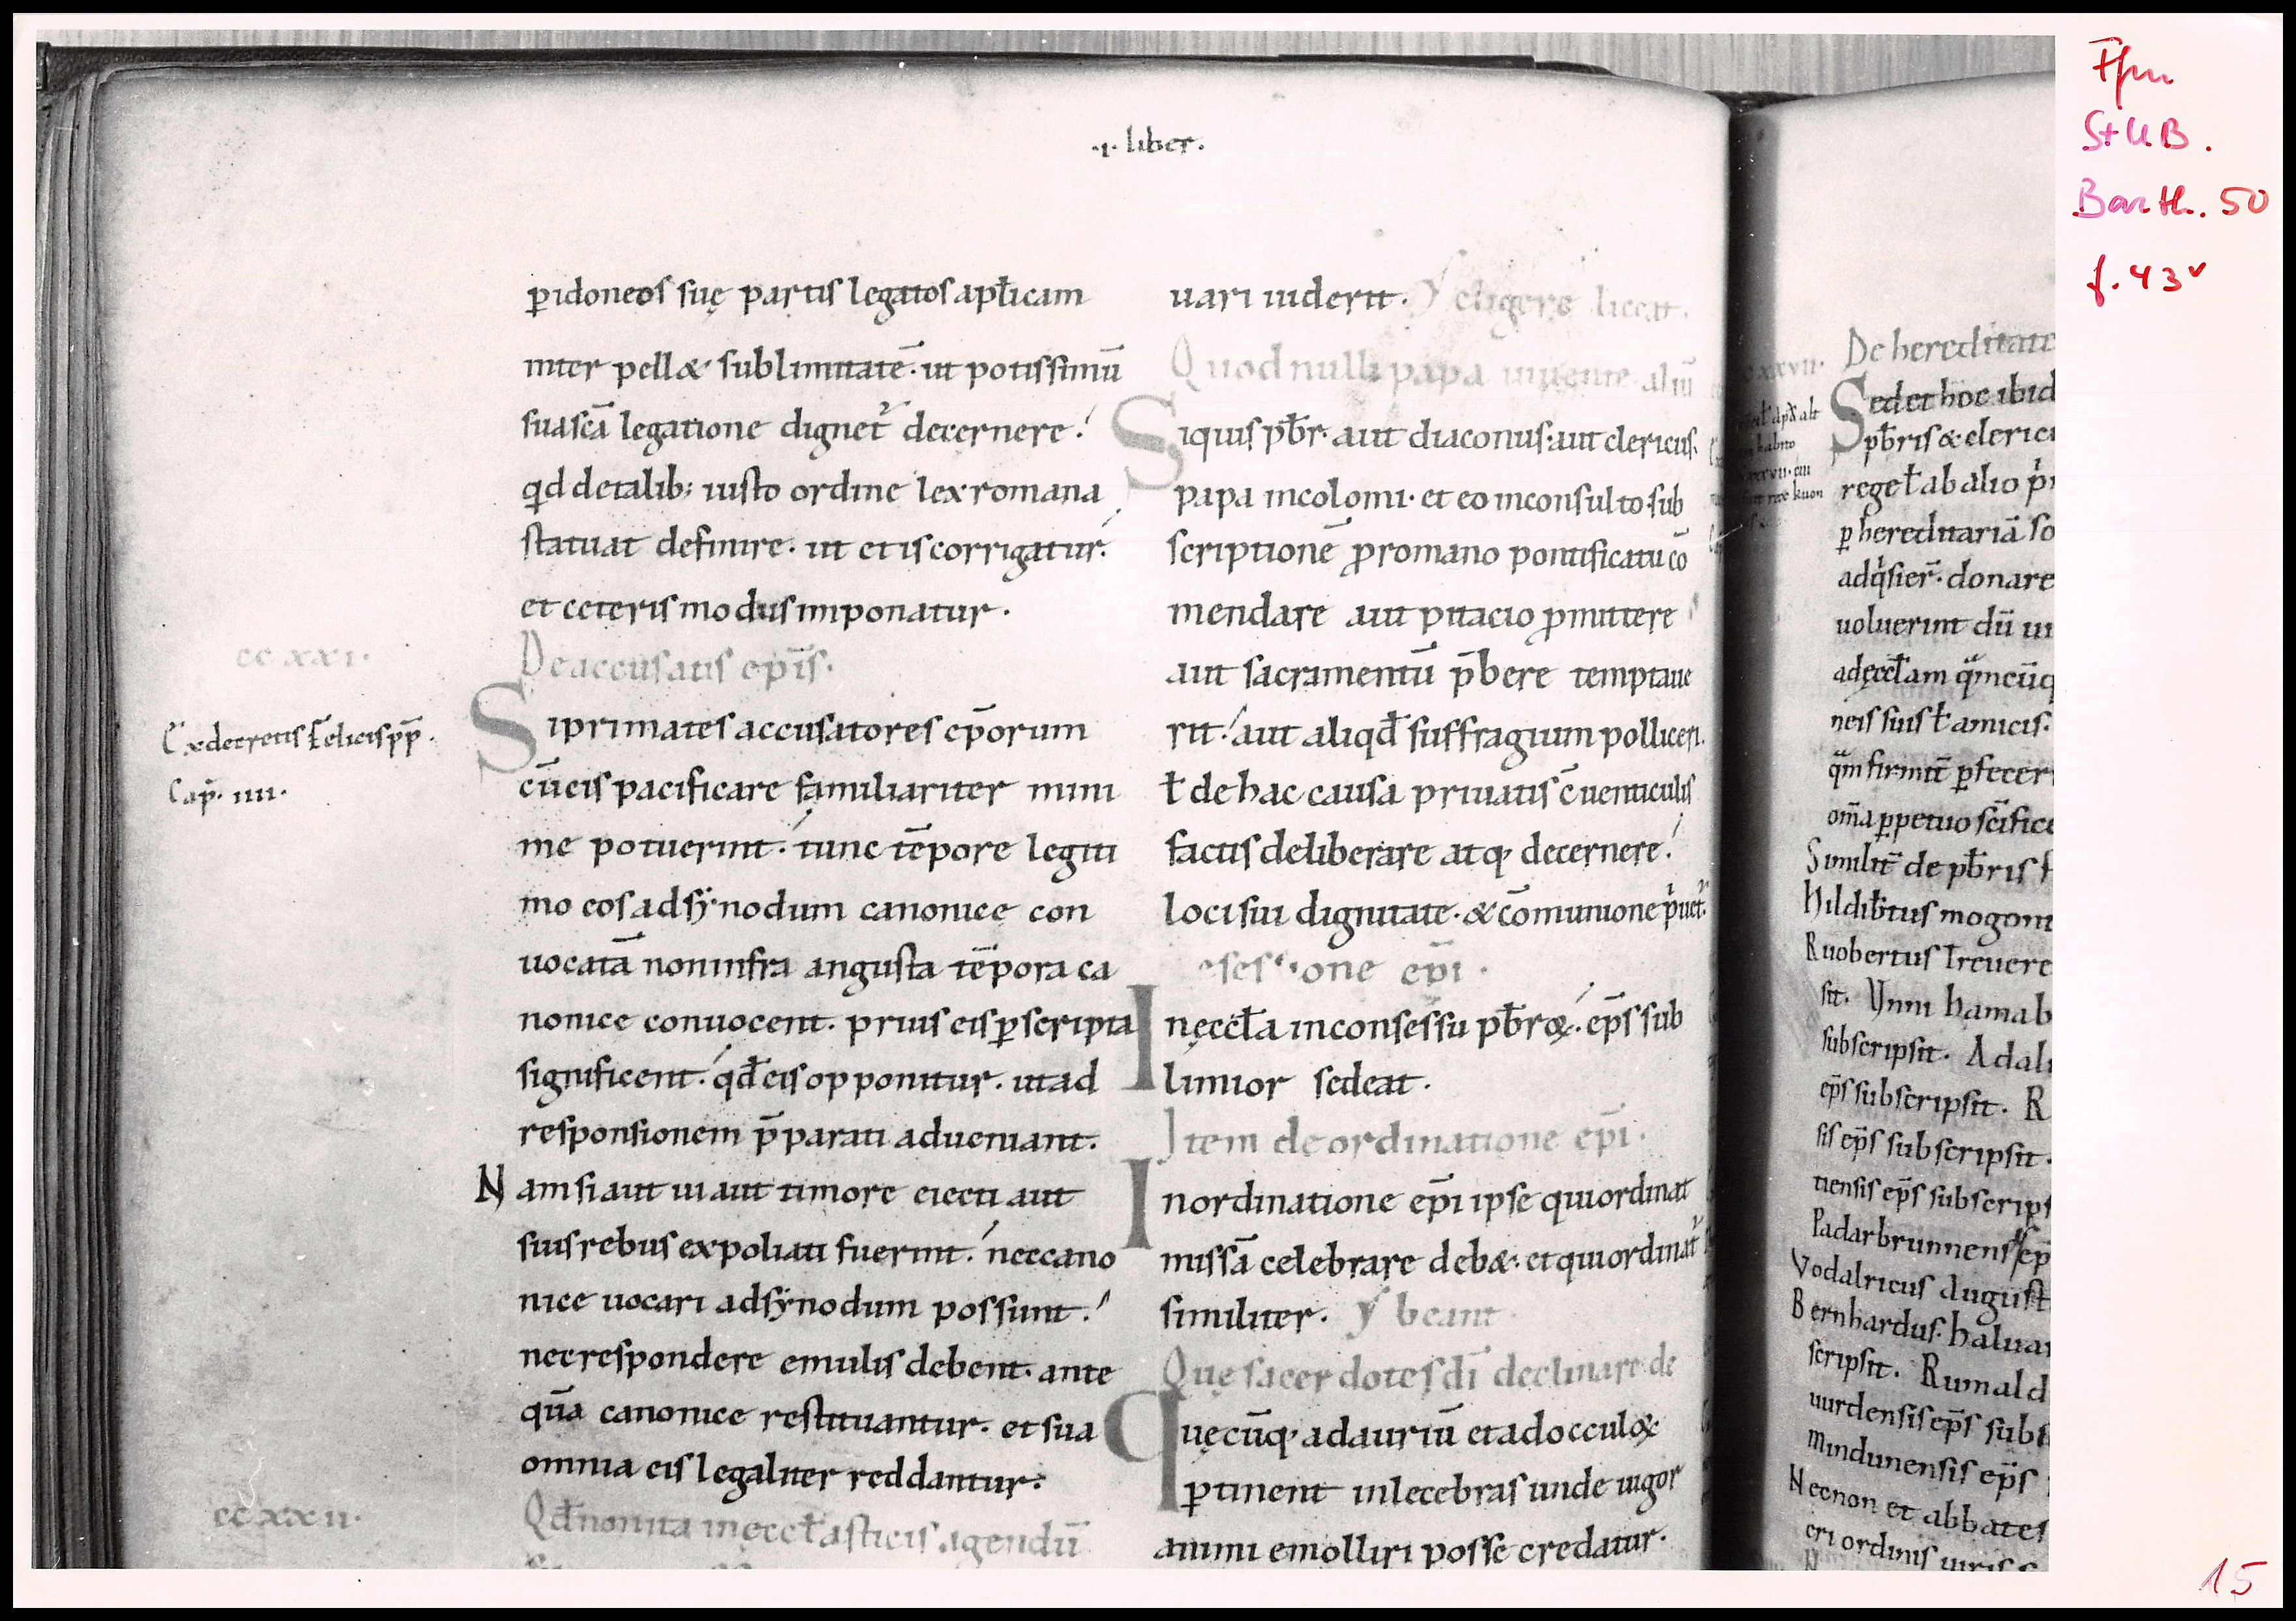 ·i· liber.
ꝑ idoneos suę partis legatos apl̄icam
inter pell& sublimitatē· ut potissimū
sua sc̄a legatione dignet᷑ decernere.
qd de talib; iusto ordine lex romana
statuat definire· ut et is corrigatur.
et ceteris modus imponatur.
cc xxi.
De accusatis ep̄is.
Ex decretis Felicis pp̄.
Cap̄. iiii.
Si primates accusatores ep̄orum
cū eis pacificare familiariter mini
me potuerint. tunc tēpore legiti
mo eos ad sẏnodum canonice con
uocatā non infra angusta tēpora ca
nonice conuocent. prius eis ꝑ scripta
significent. qd̄ eis opponitur. ut ad
responsionem p̄parati adueniant.
Nam si aut ui aut timore eiecti aut
suis rebus expoliati fuerint. nec cano
nice uocari ad sẏnodum possunt.
nec respondere emulis debent. ante
quā canonice restituantur. et sua
omnia eis legaliter reddantur.
cc xxii.
Qd̄ non ita in eccl̄asticis agendū
uari uiderit. eligere liceat.
Quod nulli papa uiuente· aliū
Si quis pb̄r· aut diaconus· aut clericus·
papa incolomi· et eo inconsulto· sub
scriptionē ꝓ romano pontificatu cō
mendare aut pitacio ꝓmittere
aut sacramentū p̄bere temptaue
rit. aut aliqd̄ suffragium polliceri.
ł de hac causa priuatis c̄uenticulis
factis deliberare atq; decernere.
loci sui dignitate· & cōmunione p'uet᷑.
ep̄i.
In eccl̄a in consessu pb̄roꝝ. ep̄s sub
limior sedeat.
Item de ordinatione ep̄i.
In ordinatione ep̄i ipse qui ordinat
missā celebrare deb&. et qui ordinat᷑
similiter. beant
Quę sacerdotes dī declinare de
Quęcūq; ad auriū et ad occuloꝝ
ꝑtinent inlecebras unde uigor
animi emolliri posse credatur.
De hereditate
Sed et hoc ibid
pb̄ris & clerici
ꝑ hereditariā so
adq'sier̄· donare
uoluerint dū ui
ad ęccl̄am
neis suis ł amicis.
ꝑfecer
om̄a ꝑpetuo
Similit̄ de pb̄ris
Hildib̄tus mogont
Ruobertus Treuere
sit. Vnni hamab
subscripsit. Adal
ep̄s subscripsit. R
sis ep̄s subscripsit.
tiensis ep̄s subscrips
Padarbrunnens ep̄
Vodalricus august
Bernhardus· halua
scripsit. Rumald
uurdensis ep̄s subs
mindunensis ep̄s
Necnon et abbates
eri ordinis uiris
Ffm
StUB.
Barth. 50
f. 43v
15